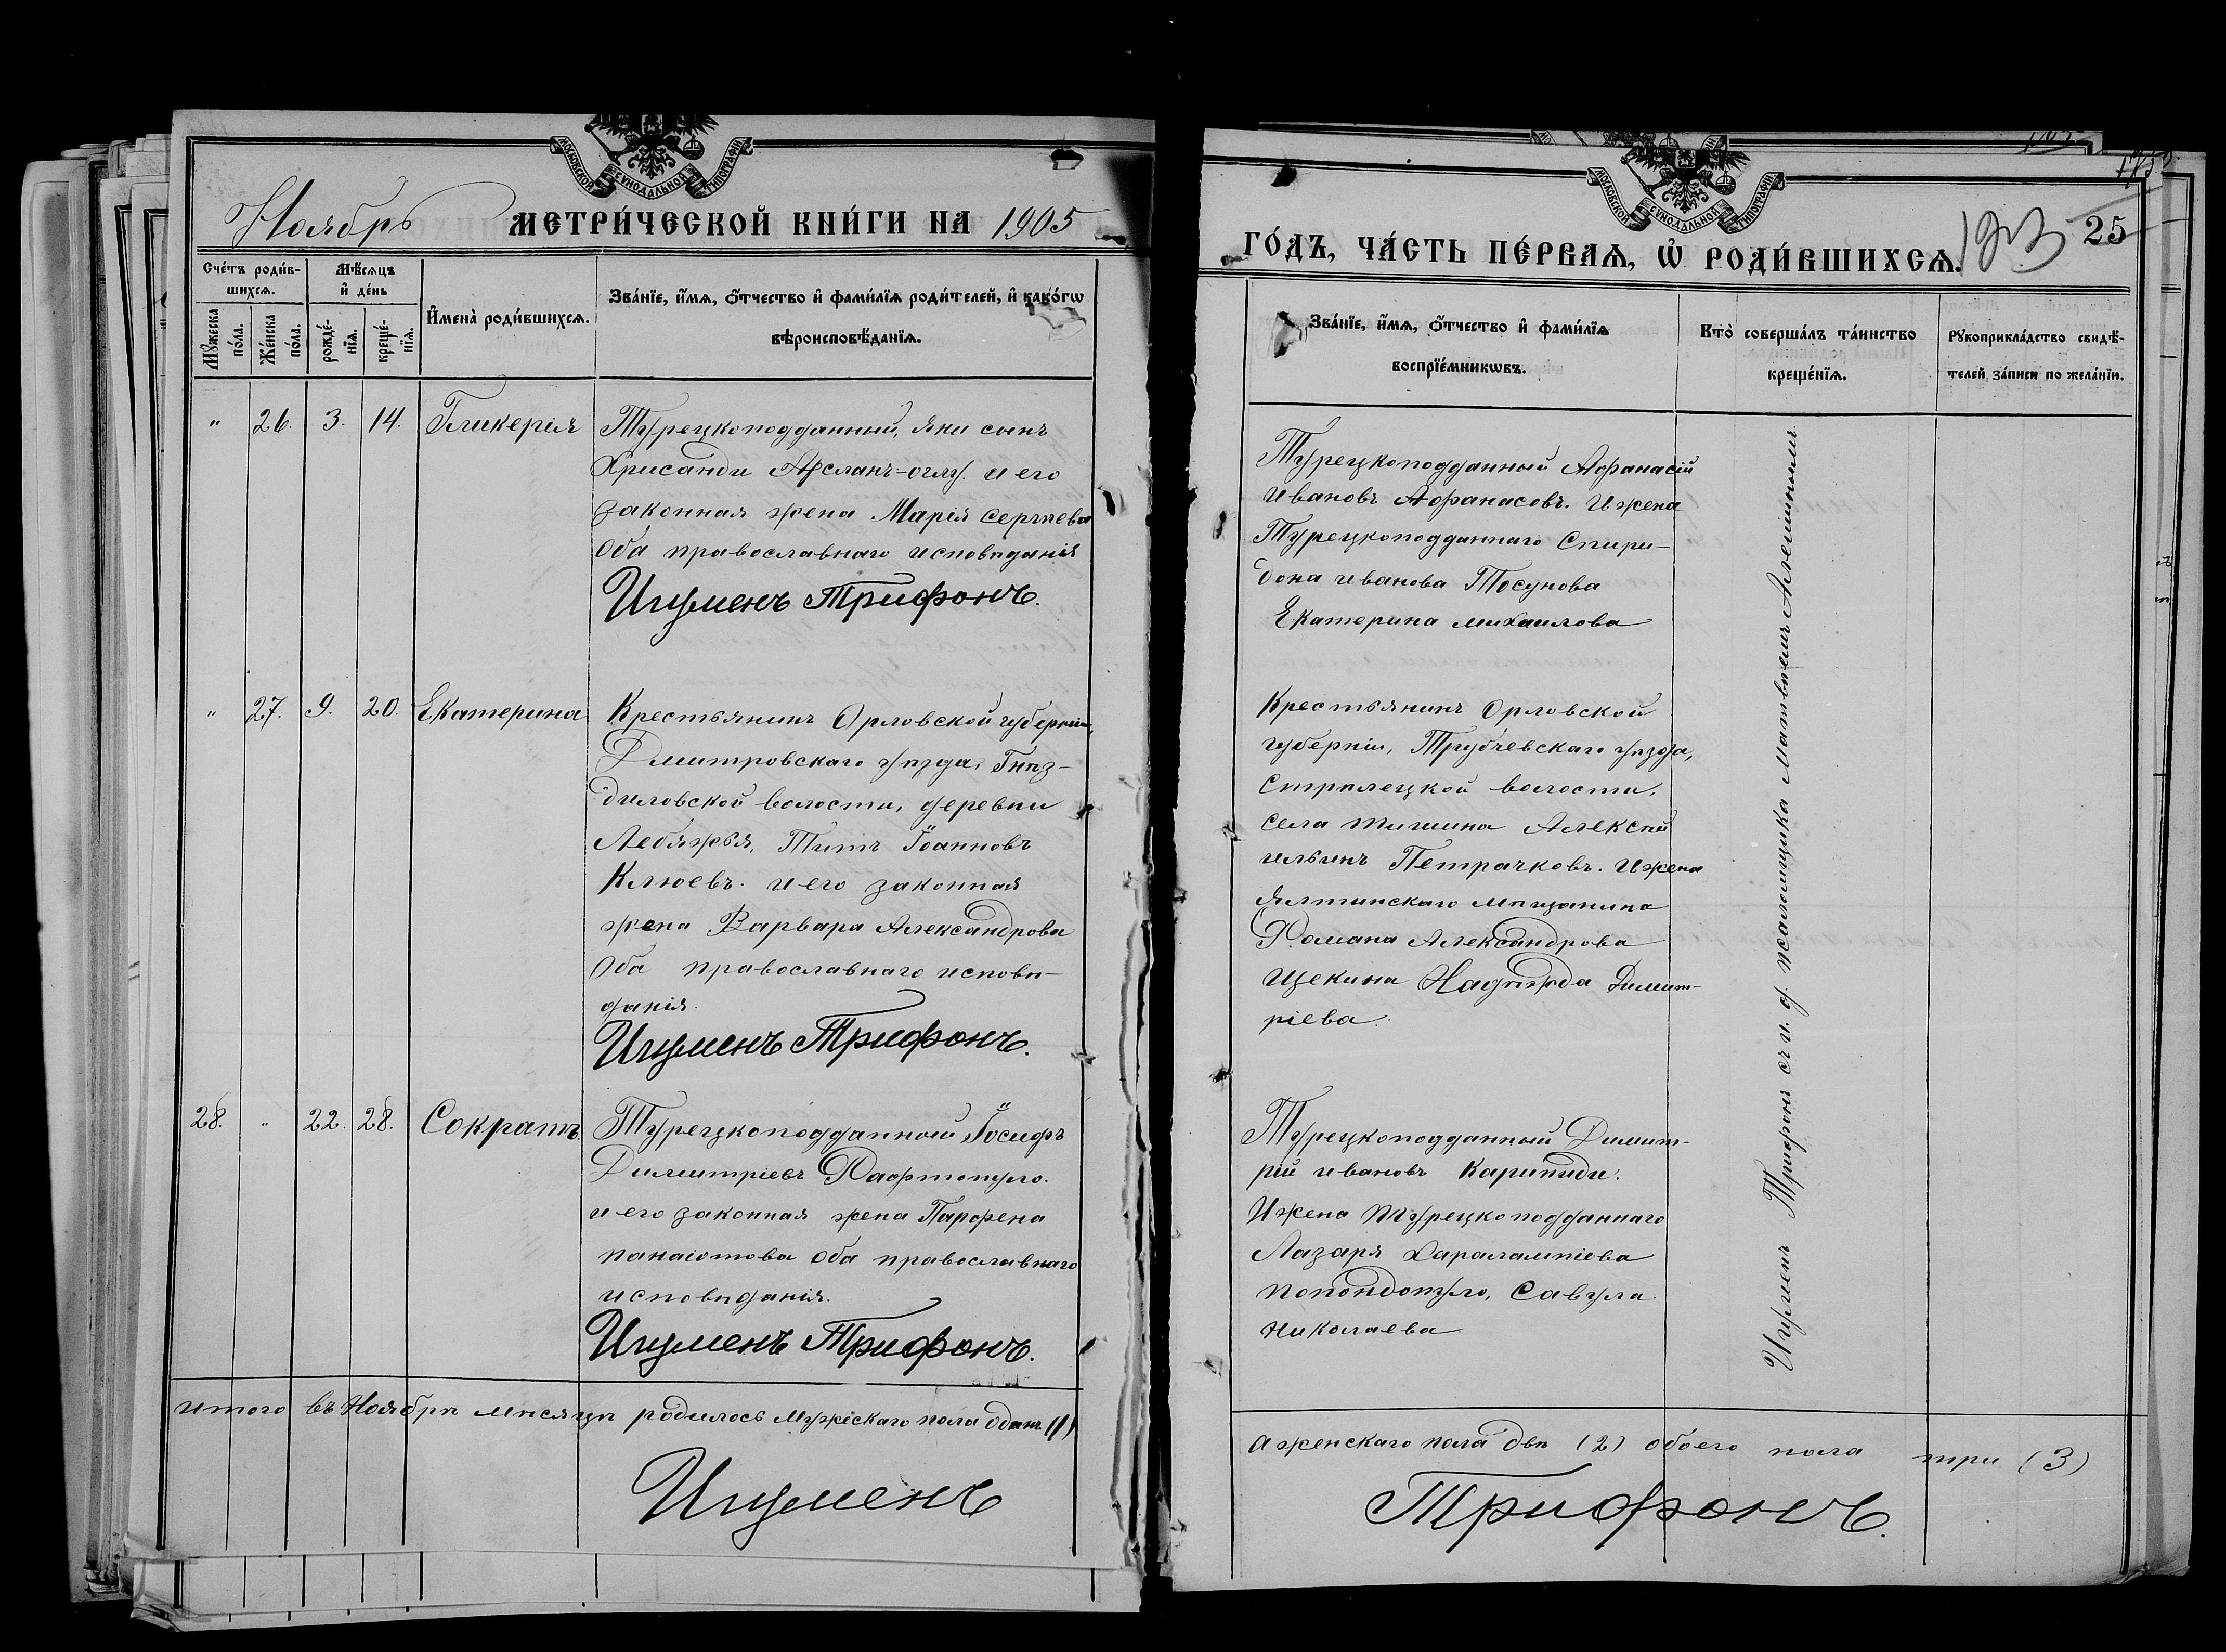 МОСКОВСКОЙ СѴНОДАЛЬНОЙ ТИПОГРАФІИ
Ноябрь МЕТРИ́ЧЕСКОЙ КНИ́ГИ НА 1905
Сче́тъ роди́в-
шихсѧ.
Мꙋ́жеска по́ла.
Же́нска по́ла.
Мѣ́сѧцъ
и҆ де́нь
рожде́-
нїѧ.
креще́-
нїѧ.
И҆мена̀ роди́вшихсѧ.
Зва́нїе, и҆́мѧ, ѻ҆́тчество и҆ фами́лїѧ роди́телей, и҆ како́гѡ
вѣроисповѣ́данїѧ.
" 26. 3. 14. Гликерія
Турецкоподданный, Яни сынъ
Хрисанди Асланъ-оглу. и его
законная жена Марія Сергѣева
Оба православнаго исповѣданія
Игуменъ Трифонъ.
" 27. 9. 20. Екатерина
Крестьянинъ Орловской губерніи,
Дмитровскаго уѣзда, Гнѣз-
диловской волости, деревни
Лебяжья, Титъ Іоанновъ
Клюевъ. и его законная
жена Варвара Александрова
Оба православнаго исповѣ-
данія.
Игуменъ Трифонъ.
28. " 22. 28. Сократъ
Турецкоподданный Іосифъ
Димитріевъ Рафтопуло.
и его законная жена Парфена
панаіотова Оба православнаго
исповѣданія.
Игуменъ Трифонъ.
итого въ Ноябрѣ мѣсяцѣ родилось мужескаго пола Одинъ (1)
Игуменъ
МОСКОВСКОЙ СѴНОДАЛЬНОЙ ТИПОГРАФІИ
25
ГО́ДЪ, ЧА́СТЬ ПЕ́РВАѦ, Ѡ҆ РОДИ́ВШИХСѦ.
Зва́нїе, и҆́мѧ, ѻ҆́тчество и҆ фами́лїѧ
воспрїе́мникѡвъ.
Кто̀ соверша́лъ та́инство
креще́нїѧ.
Рꙋкоприкла́дство свидѣ́-
телей за́писи по жела́нїю.
Турецкоподданный Афанасій
ивановъ Афанасовъ. И жена
Турецкоподданнаго Спири-
дона иванова Тосунова
Екатерина михаилова
Крестьянинъ Орловской
губерніи, Трубчевскаго уѣзда,
Стрѣлецкой волости,
села тишина Алексѣй
ильинъ Петрачковъ. И жена
Ялтинскаго мѣщанина
Романа Александрова
Щекина Надѣжда Димит-
ріева.
Турецкоподданный Димит-
рій ивановъ Карипиди.
И жена турецкоподданнаго
Лазаря Харалампіева
попондопуло, Савула
Николаева
Игуменъ Трифонъ съ и. д. псаломщика Матвѣемъ Алешинымъ
а женскаго пола двѣ (2) обоего пола три (3)
Трифонъ.